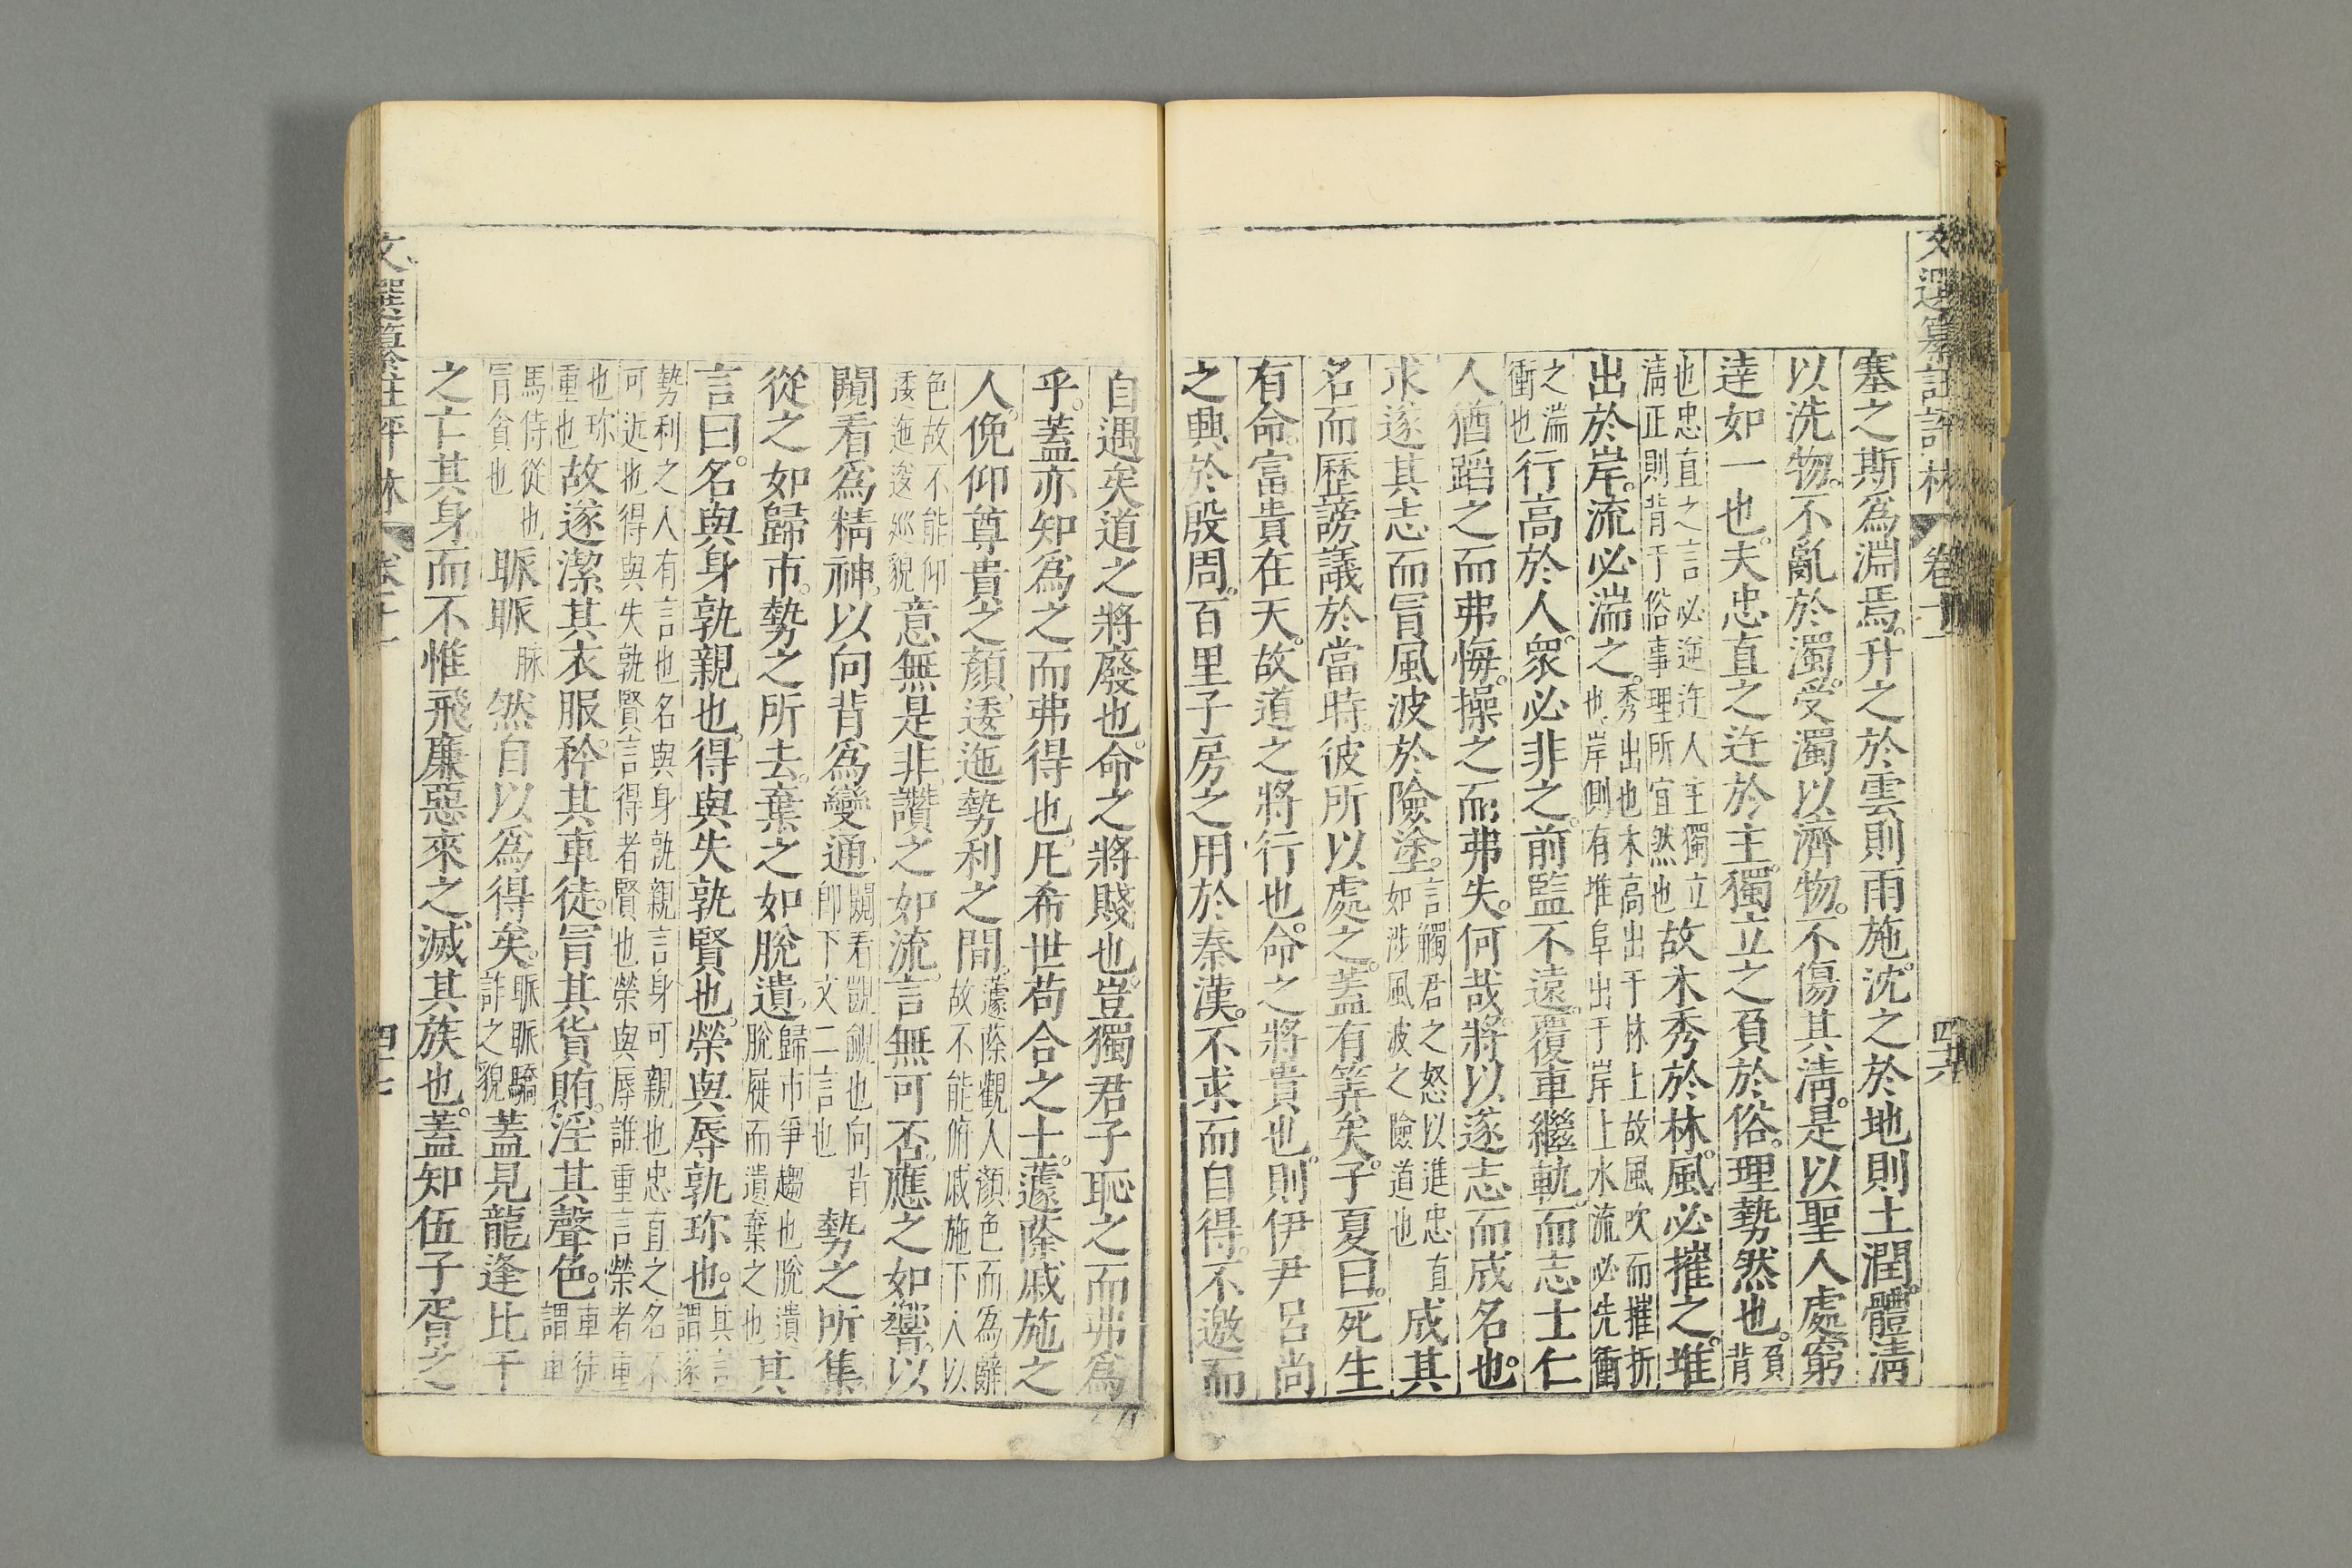 文選纂註評林 卷十一 四十六
塞之斯爲淵焉。升之於雲則雨施。沈之於地則土潤。體淸
以洗物。不亂於濁。受濁以濟物。不傷其淸。是以聖人處窮
達如一也。夫忠直之迕於主。獨立之負於俗。理勢然也。負背
也忠直之言必逆迕人主獨立淸正則背于俗事理所宜然也故木秀於林。風必摧之。堆
出於岸。流必湍之。秀出也木高出于林上故風吹而摧折也岸側有堆阜出于岸上水流必先衝
之湍衝也行高於人。衆必非之。前監不遠。覆車繼軌。而志士仁
人猶蹈之而弗悔。操之而弗失。何哉。將以遂志而成名也。
求遂其志而冒風波於險塗。言觸君之怒以進忠直如涉風波之險道也成其
名而歷謗議於當時。彼所以處之。蓋有筭矣。子夏曰。死生
有命。富貴在天。故道之將行也。命之將貴也。則伊尹呂尚
之興於殷周。百里子房之用於秦漢。不求而自得。不邀而
自遇矣道之將廢也。命之將賤也。豈獨君子恥之而弗爲
乎。蓋亦知爲之而弗得也。凡希世苟合之士。蘧蒢戚施之
人。俛仰尊貴之顏。逶迤勢利之間。蘧蒢觀人顏色而爲辭故不能俯戚施下人以
色故不能仰逶迤逡巡貌意無是非。讚之如流。言無可否。應之如響。以
闚看爲精神。以向背爲變通。闚看覷覰也向背卽下文二言也勢之所集。
從之如歸市。勢之所去。棄之如脫遺。歸市爭趨也脫遺脫屣而遺棄之也其
言曰。名與身孰親也。得與失孰賢也。榮與辱孰珎也。其言謂逐
勢利之人有言也名與身孰親言身可親也忠直之名不可近也得與失孰賢言得者賢也榮與辱誰重言榮者重
也珎重也故遂潔其衣服。矜其車徒。冒其貨賄。淫其聲色。車徒謂車
馬侍從也冒貪也脈脈脉然自以爲得矣。脈脈驕詐之貌蓋見龍逢比干
之亡其身。而不惟飛廉惡來之滅其族也。蓋知伍子胥之
文選纂註評林 卷十一 四十七